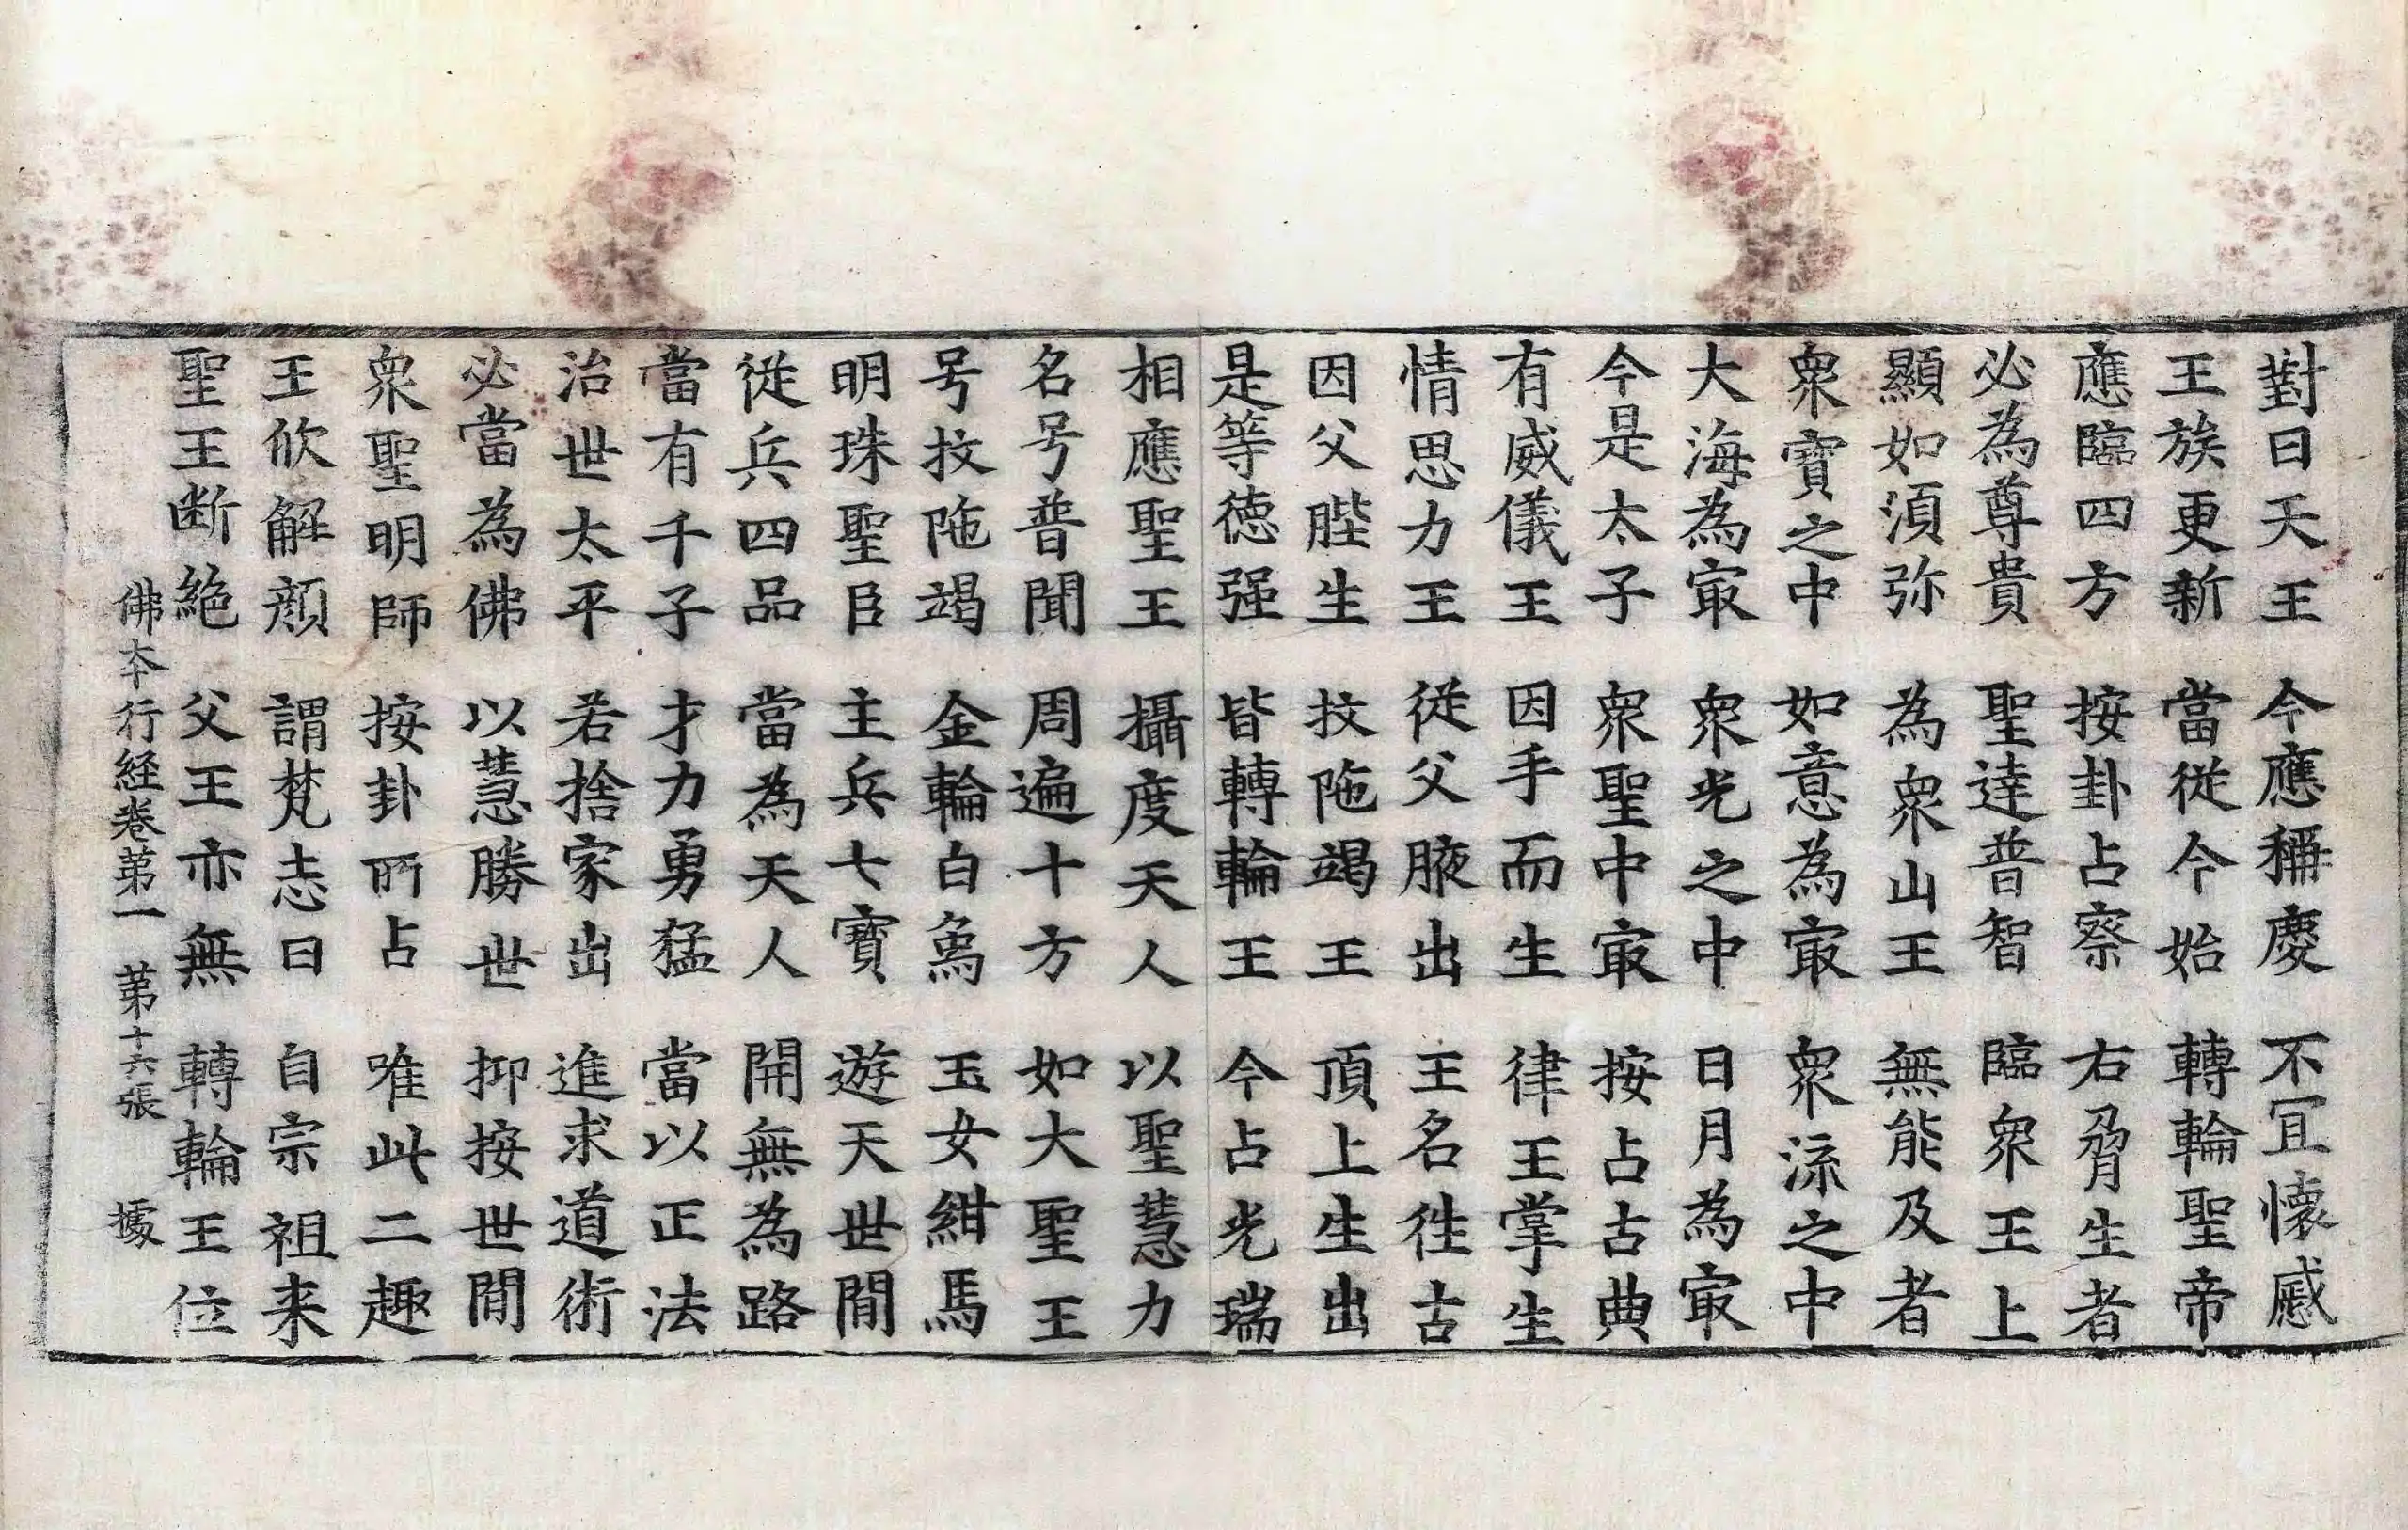 對曰天王 今應稱慶 不冝懷慼
王族更新 當從今始 轉輪聖帝
應臨四方 按卦占察 右脅生者
必為尊貴 聖達普智 臨衆王上
顯如湏弥 為衆山王 無能及者
衆寶之中 如意為㝡 衆流之中
大海為㝡 衆光之中 日月為㝡
今是太子 衆聖中㝡 按占古典
有威儀王 因手而生 律王掌生
情思力王 從父腋出 王名徃古
因父䏶生 抆陁竭王 頂上生出
是等德强 皆轉輪王 今占光瑞
相應聖王 攝度天人 以聖慧力
名号普聞 周遍十方 如大聖王
号抆陁竭 金輪白象 玉女紺馬
明珠聖臣 主兵七寶 遊天世間
從兵四品 當為天人 開無為路
當有千子 才力勇猛 當以正法
治世太平 若捨家出 進求道術
必當為佛 以慧勝世 抑按世間
衆聖明師 按卦所占 唯此二趣
王欣解顔 謂梵志曰 自宗祖来
聖王断絶 父王亦無 轉輪王位
佛夲行経卷第一 第十六張 據